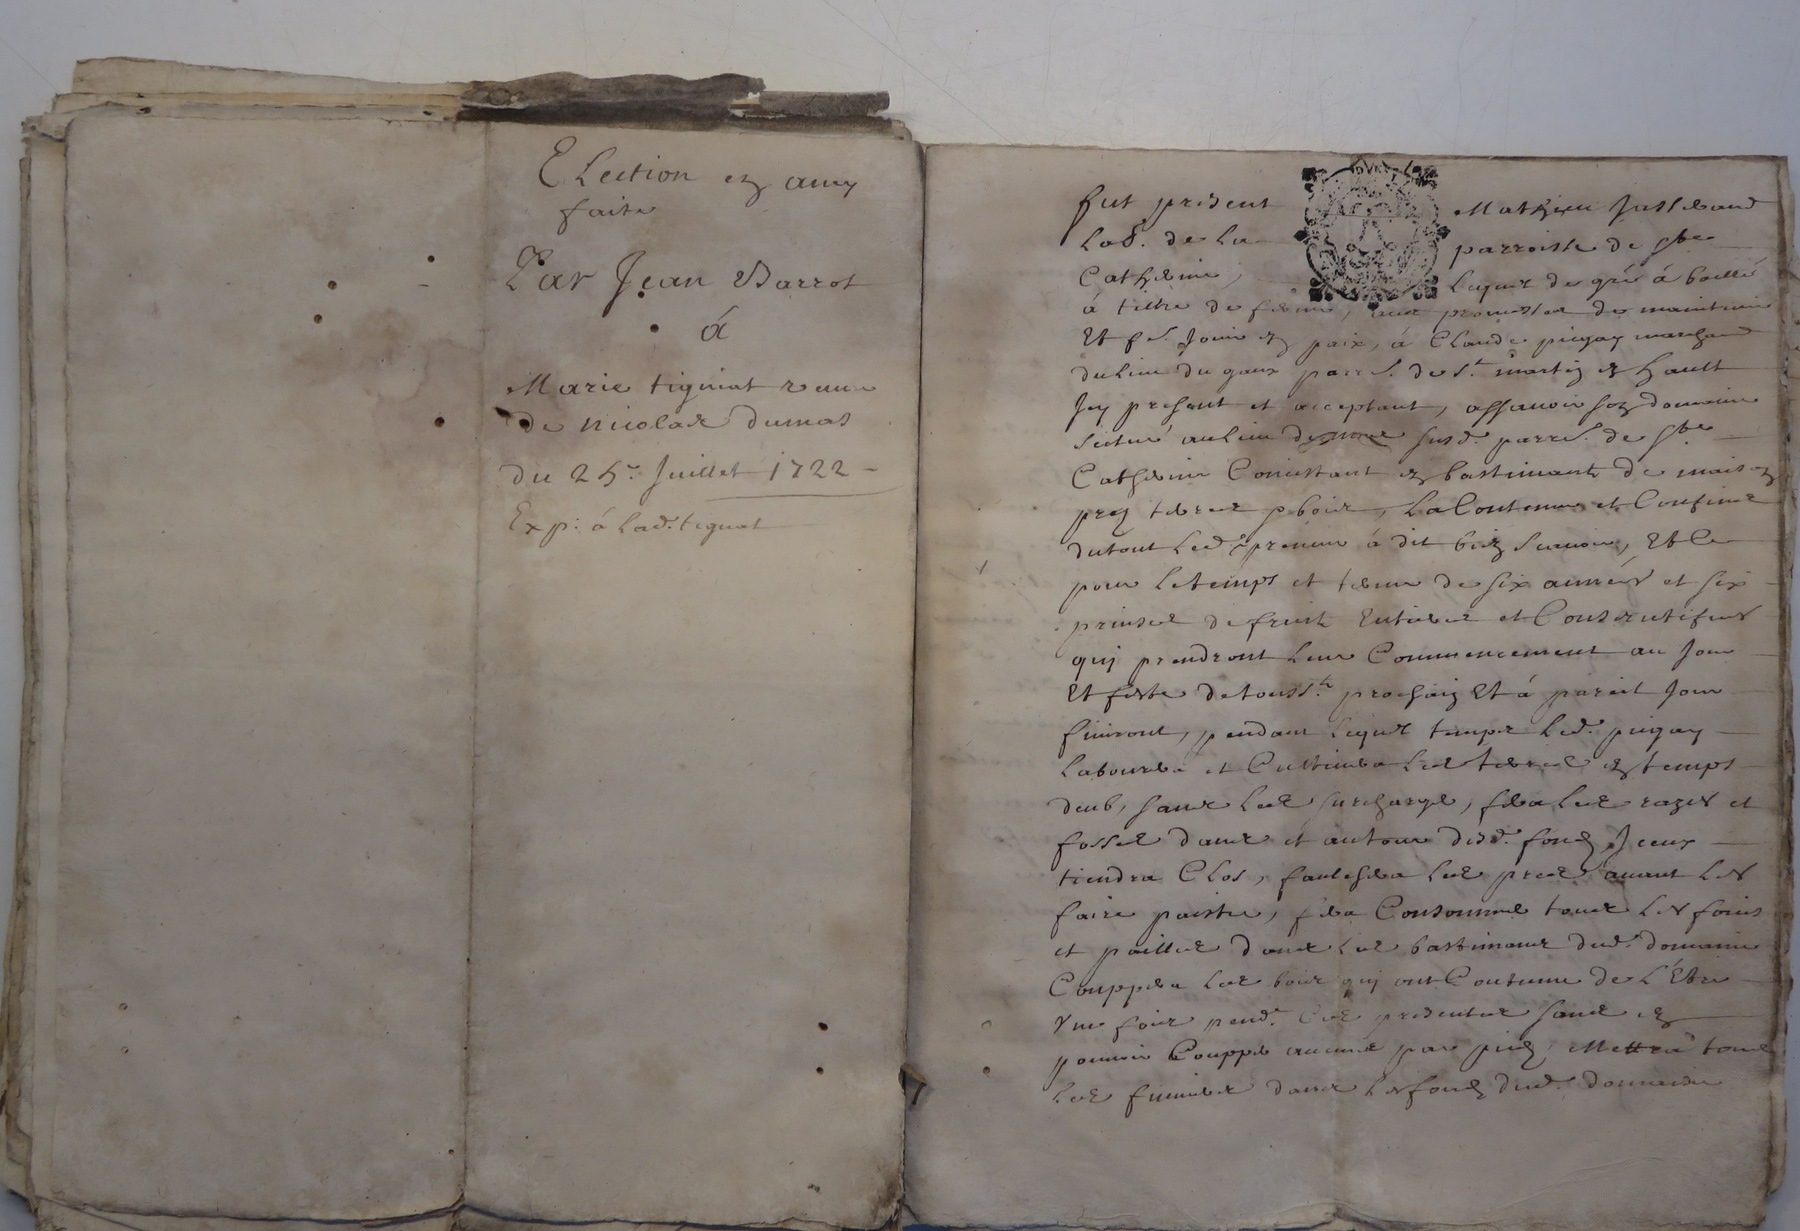 Election en amy
faite
Par Jean Barrot
á
Marie tigniat veuve
de nicolas dumas
du 25e. Juillet 1722
Exp: á lad. tigniat
fut present Mathieu Jasserand
Lab. de la parroisse de Ste
Catherine, lequel de gré á baillé
á tiltre de ferme, avec promesse de maintenir
Et fe. Jouir en paix, á Claude pugay marchand
du lieu du gaux parre. de St. martin en hault
Jcy present et acceptant, assavoir son domaine
scitué au lieu de susd. parre. de Ste
Catherine Concistant en bastimants de maison
prez terres & bois, La Contenue et Confins
du tout led. preneur á dit bien scavoir, Et Ce
pour le temps et terme de six années et six
prinses de fruits Entieres et Consecutifves
quj prendront leur Commencement au Jour
Et feste de touss.ts prochain Et á pareil Jour
finiront, pendant lequel temps led. pugay
labourera et Cultivera les terres en temps
deub, sans les surcharger, fera les razes et
fosses dans et autour desd. fondz, Jceux
tiendra Clos, fauchera les prez avant les
faire paistre, fera Consommer tous les foins
et pailles dans les bastimans dud. domaine
Couppera les bois quj ont Coutume de l'Etre
Vne fois pend. Ces presentes sans en
pouvoir Coupper aucuns par pied, Mettra tous
les fumiers dans les fondz dud. domaine